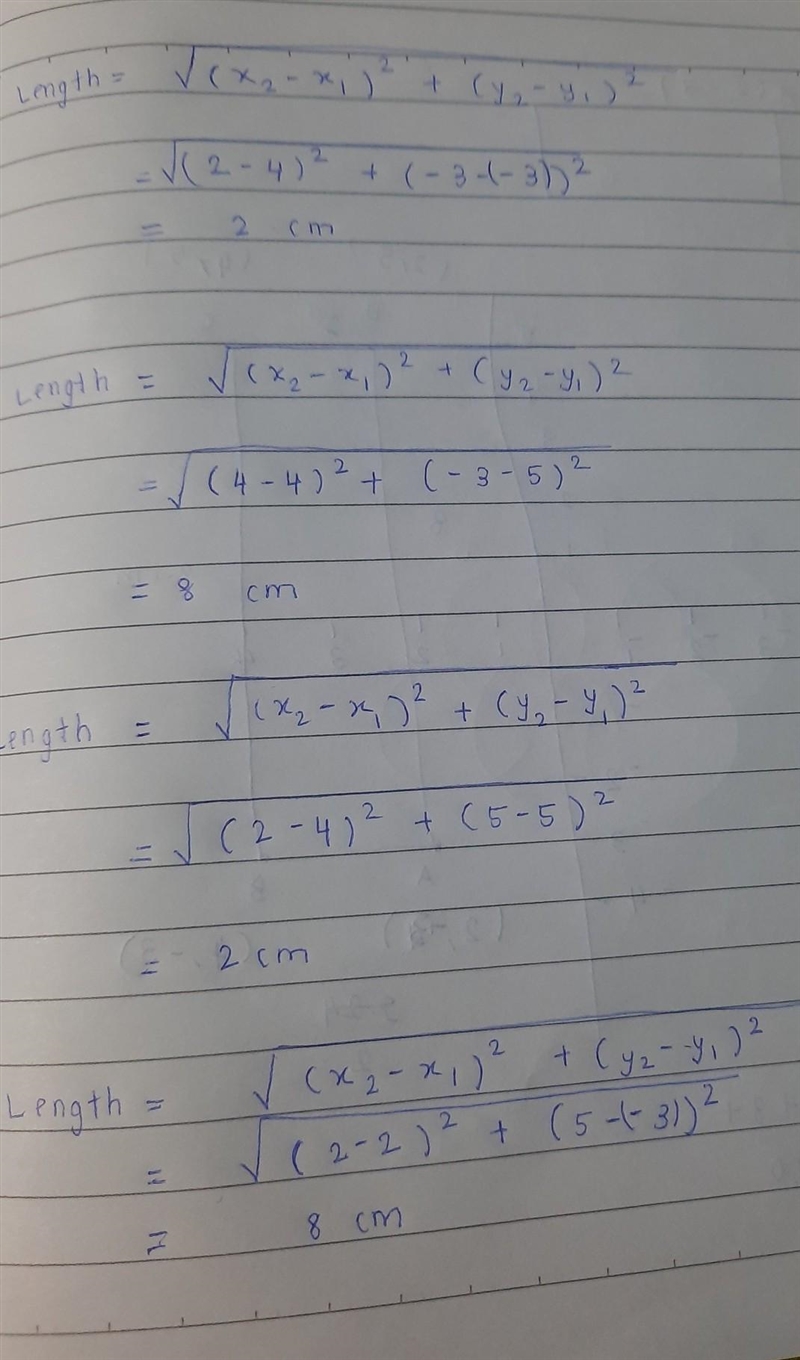 Length = √(x₂ - x₁)² + (y₂ - y₁)²
= √(2 - 4)² + (-3-(-3))²
= 2 cm
Length = √(x₂ - x₁)² + (y₂ - y₁)²
= √(4 - 4)² + (-3 - 5)²
= 8 cm
Length = √(x₂ - x₁)² + (y₂ - y₁)²
= √(2 - 4)² + (5 - 5)²
= 2 cm
Length = √(x₂ - x₁)² + (y₂ - y₁)²
= √(2 - 2)² + (5 -(-3))²
= 8 cm